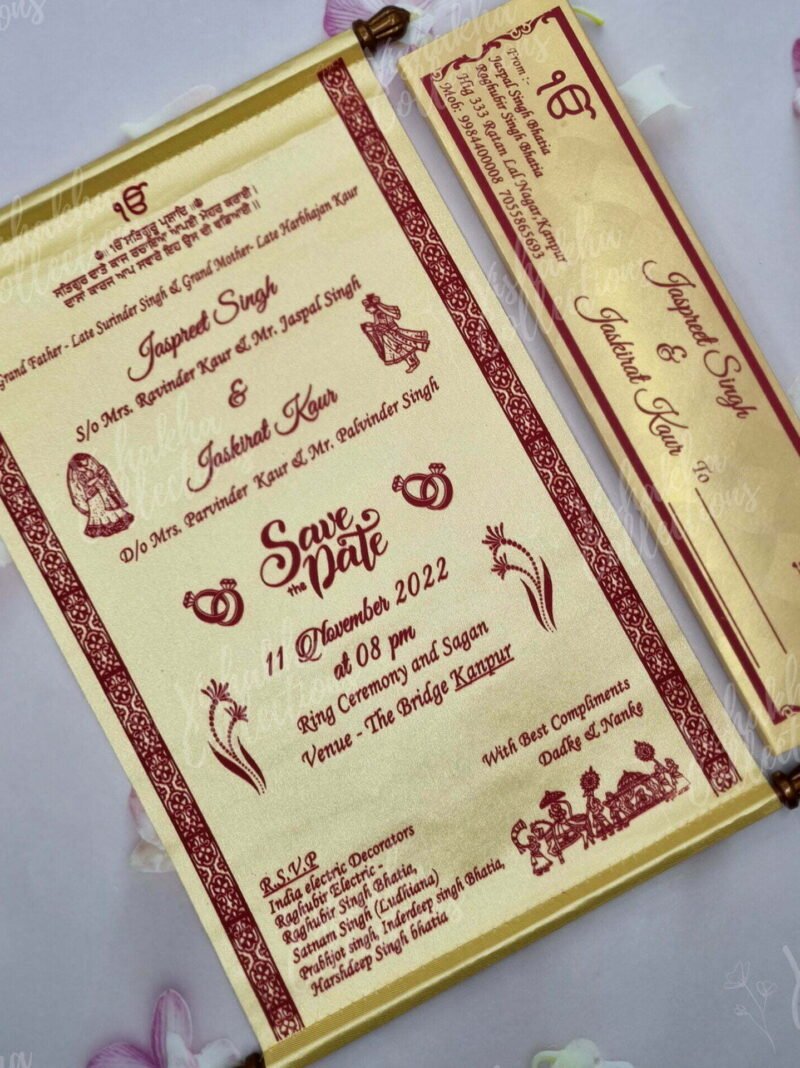 ੴ
ੴ ਸਤਿਗੁਰ ਪ੍ਰਸਾਦਿ ॥
ਸਤਿਗੁਰ ਦਾਤੇ ਕਾਜ ਰਚਾਇਆ ਆਪਣੀ ਮੇਹਰ ਕਰਾਈ ।
ਦਾਸਾਂ ਕਾਰਜ ਆਪ ਸਵਾਰੇ ਇਹ ਉਸ ਦੀ ਵਡਿਆਈ ॥
Grand Father - Late Surinder Singh & Grand Mother- Late Harbhajan Kaur
Jaspreet Singh
S/o Mrs. Ravinder Kaur & Mr. Jaspal Singh
&
Jaskirat Kaur
D/o Mrs. Parvinder Kaur & Mr. Palvinder Singh
Save
the Date
11 November 2022
at 08 pm
Ring Ceremony and Sagan
Venue - The Bridge Kanpur
With Best Compliments
Dadke & Nanke
R.S.V.P
India electric Decorators
Raghubir Electric -
Raghubir Singh Bhatia,
Satnam Singh (Ludhiana)
Prabhjot singh, Inderdeep singh Bhatia,
Harshdeep Singh bhatia
ੴ
From :-
Jaspal Singh Bhatia
Raghubir Singh Bhatia
Hig 333 Ratan Lal Nagar,Kanpur
Mob: 9984400008 7055865693
Jaspreet Singh
&
Jaskirat Kaur
To
Yakshakha
Collections